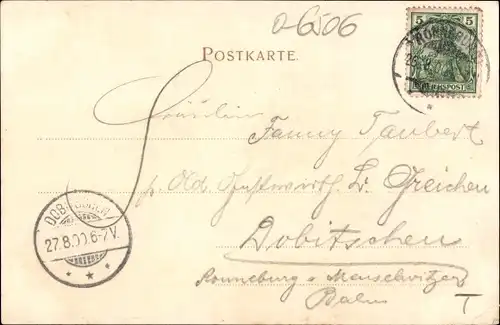 0-6506
POSTKARTE.
5 5
REICHSPOST
RONNEBURG
Fräulein
Fanny Taubert
p. Ad. Gastwirth L. Greichen
Dobitschen
DOBITSCHEN
27.8.00.6-7V.
Ronneburg - Meuselwitzer
Bahn
T